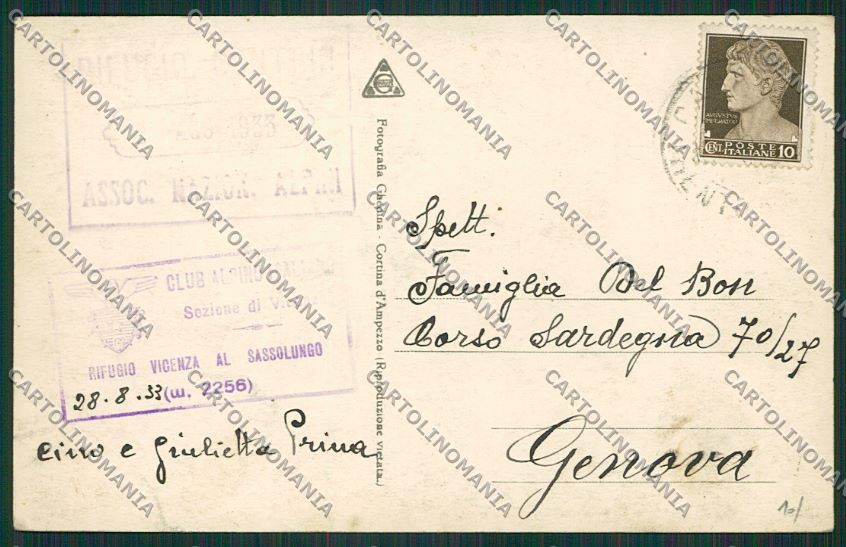 RIFUGIO
AGO. 1933
ASSOC. NAZION. ALPINI
CLUB ALPINO ITALIANO
Sezione di
RIFUGIO VICENZA AL SASSOLUNGO
28.8.33 (m. 2256)
Ciro e Giulietta Prina
Fotografia Ghedina - Cortina d'Ampezzo (Riproduzione vietata)
AUGUSTUS
IMPERATOR
CENT. POSTE ITALIANE 10
Spett.
Famiglia Del Bon
Corso Sardegna 70/27
Genova
10/
CARTOLINOMANIA